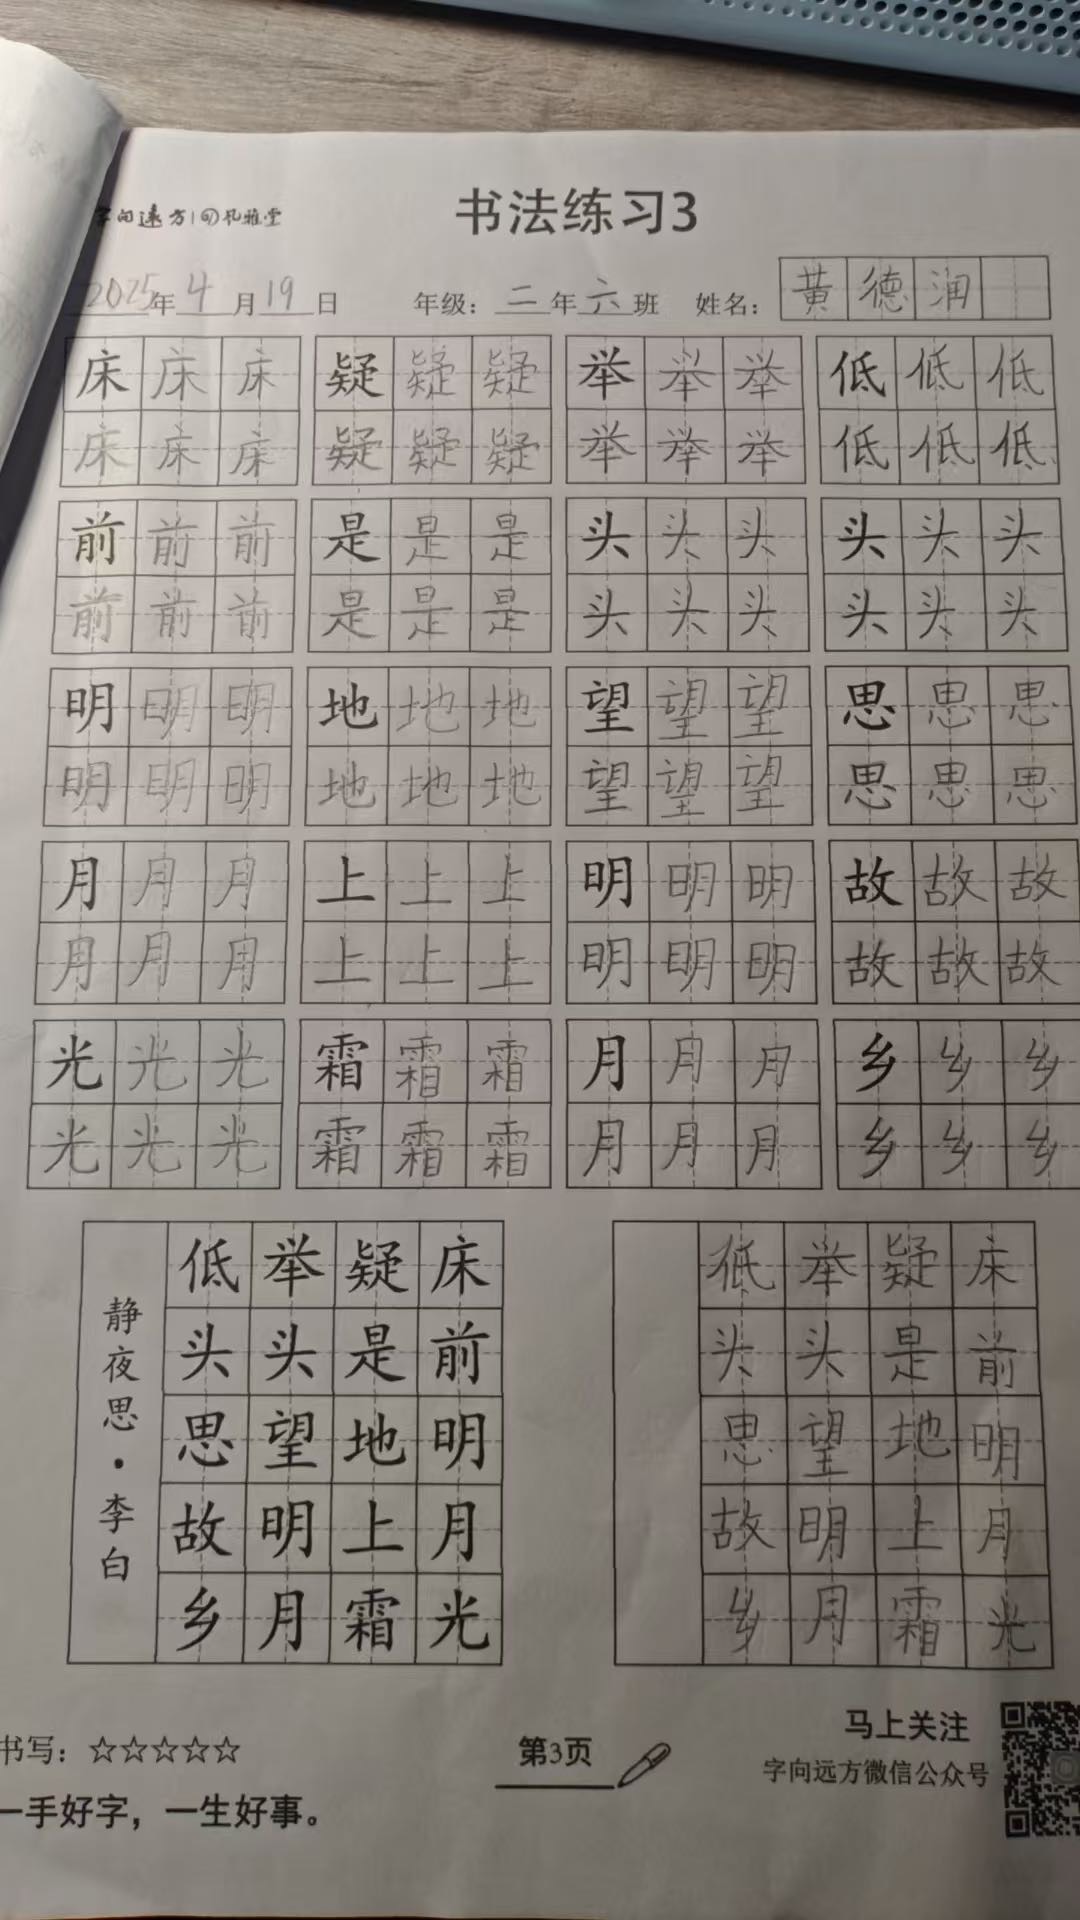 字向远方 孔雅堂
书法练习3
2025年4月19日 年级：二年六班 姓名：黄德润
床床床 疑疑疑 举举举 低低低
床床床 疑疑疑 举举举 低低低
前前前 是是是 头头头 头头头
前前前 是是是 头头头 头头头
明明明 地地地 望望望 思思思
明明明 地地地 望望望 思思思
月月月 上上上 明明明 故故故
月月月 上上上 明明明 故故故
光光光 霜霜霜 月月月 乡乡乡
光光光 霜霜霜 月月月 乡乡乡
床前明月光
疑是地上霜
举头望明月
低头思故乡
静夜思·李白
床前明月光
疑是地上霜
举头望明月
低头思故乡
书写：☆☆☆☆☆
一手好字，一生好事。
第3页
马上关注
字向远方微信公众号